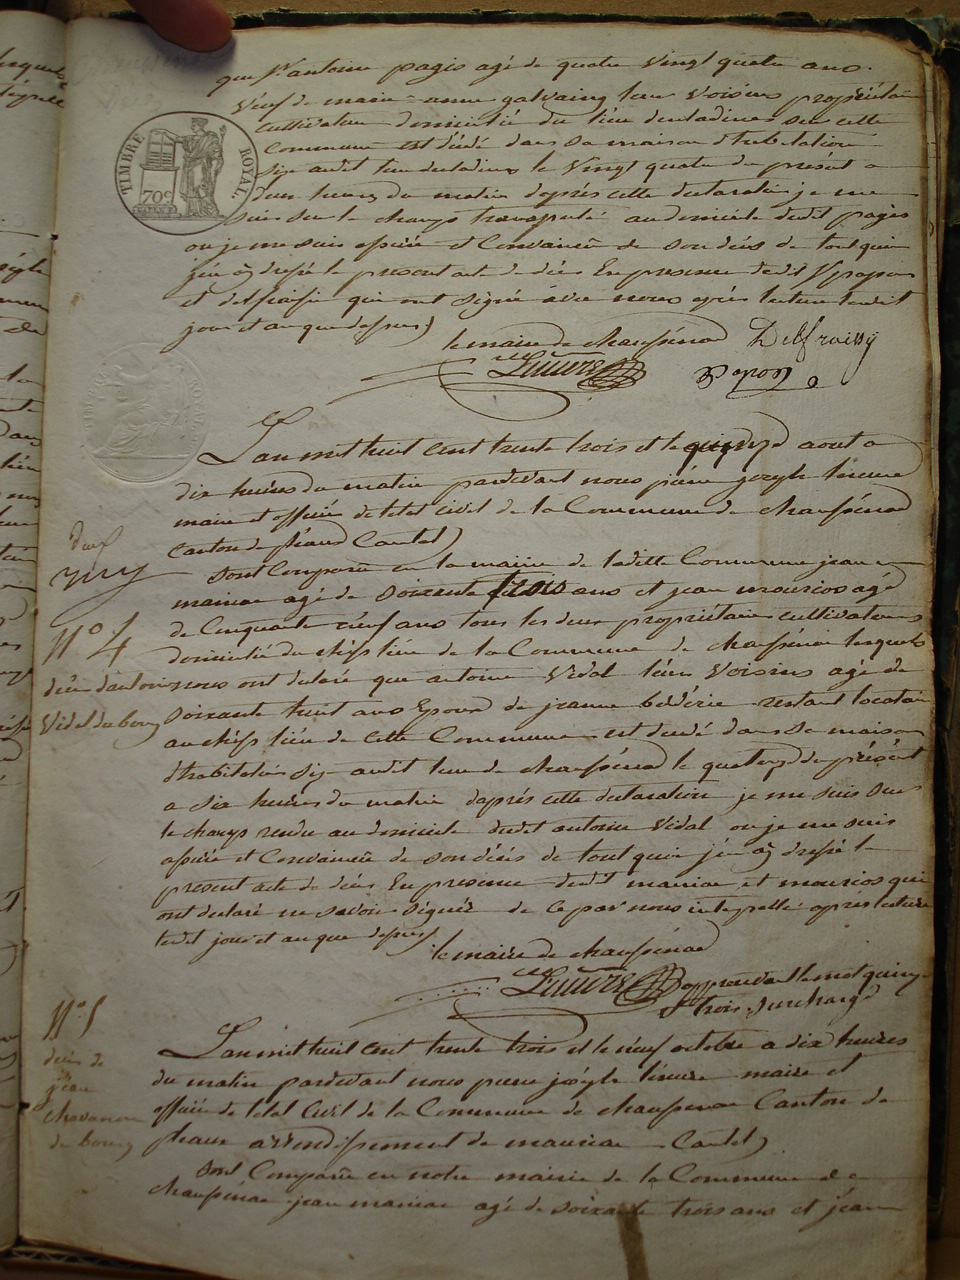 que sr antoine pagis agé de quatre vingt quatre ans
veuf de marie-anne galvaing leur voisins propriétaire
cultivateur domicilié du lieu cette
commune est décédé dans sa maison d'habitation
size audit lieu le vingt quatre du présent a
deux heures du matin daprès cette declaration je me
suis sur le champ transporté au domicile dudit pagis
ou je me suis assuré et Convaincû de son décès de tout quoi
j'en ai dressé le present acte de décès En presence dudit
et delfraissi qui ont signé avec nous après lecture tenue
jour et an que dessus
TIMBRE ROYAL.
70c
le maire de chaussenac
Delfraissy
Lescure
Papon
L'an mil huit cent trente trois et le quinze aout a
dix heures du matin pardevant nous pierre joseph lescure
maire et officier de letat civil de la Commune de chaussenac
canton de pleaux Cantal
sont Comparû en la mairie de ladite Commune jean
maniac agé de soixante trois ans et jean mourios agé
de Cinquante neuf ans tous les deux propriétaire cultivateurs
domicilié du chef lieu de la Commune de chaussenac lesquels
N° 4
décès d'antoine
Vidal du bourg
nous ont declaré que antoine Vidal leur voisins agé de
soixante huit ans Epoux de jeanne restant locataire
au chef lieu de cette Commune est decedé dans sa maison
d'habitation size audit lieu de chaussenac le quatorze du présent
a six heures du matin daprés cette declaration je me suis sur
le champ rendu au domicile dudit antoine Vidal ou je me suis
assuré et Convaincû de son décés de tout quoi j'en ai dressé le
present acte de décès En presence dudit maniac et mourios qui
ont declaré ne savoir signér de ce par nous interpellé après lecture
ledit jour et an que dessus
le maire de chaussenac
Lescure
approuvant le mot quinze
trois surchargé
N° 5
décès de
jean
chavanon
du bourg
L'an mil huit cent trente trois et le neuf octobre a dix heures
du matin pardevant nous pierre joseph lescure maire et
officier de letat Civil de la Commune de chaussenac Canton de
pleaux arrondissement de mauriac Cantal
sont Comparû en notre mairie de la Commune de
chaussenac jean maniac agé de soixante trois ans et jean